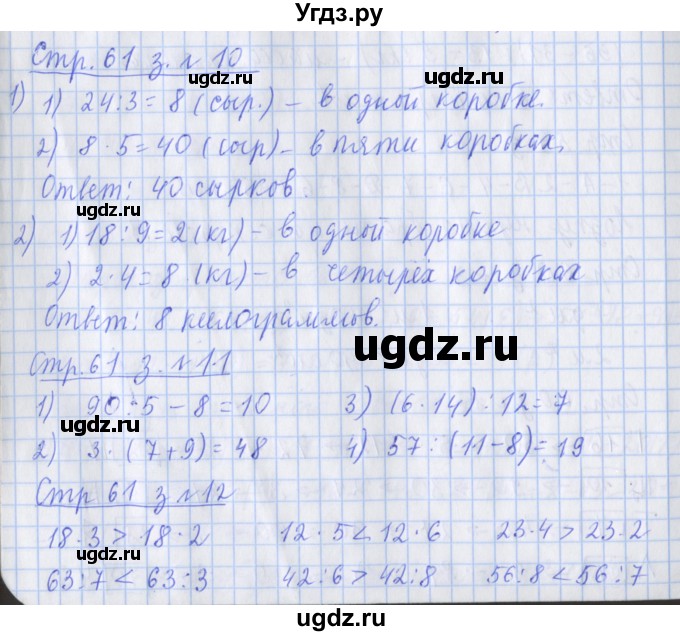 Угдз.ру
Стр. 61 з. № 10
ugdz.ru
1) 1) 24:3 = 8 (сыр.) – в одной коробке.
2) 8 · 5 = 40 (сыр) – в пяти коробках.
ugdz.ru
Ответ: 40 сырков.
ugdz.ru
2) 1) 18:9 = 2 (кг) – в одной коробке
2) 2·4 = 8 (кг) – в четырёх коробках
ugdz.ru
Ответ: 8 килограммов.
ugdz.ru
Стр. 61 з. № 11
1) 90:5 – 8 = 10 3) (6·14) : 12 = 7
ugdz.ru
2) 3·(7+9) = 48 4) 57 : (11–8) = 19
ugdz.ru
Стр 61 з № 12
ugdz.ru
18·3 > 18·2 12·5 < 12·6 23·4 > 23·2
ugdz.ru
63:7 < 63:3 42:6 > 42:8 56:8 < 56:7
ugdz.ru